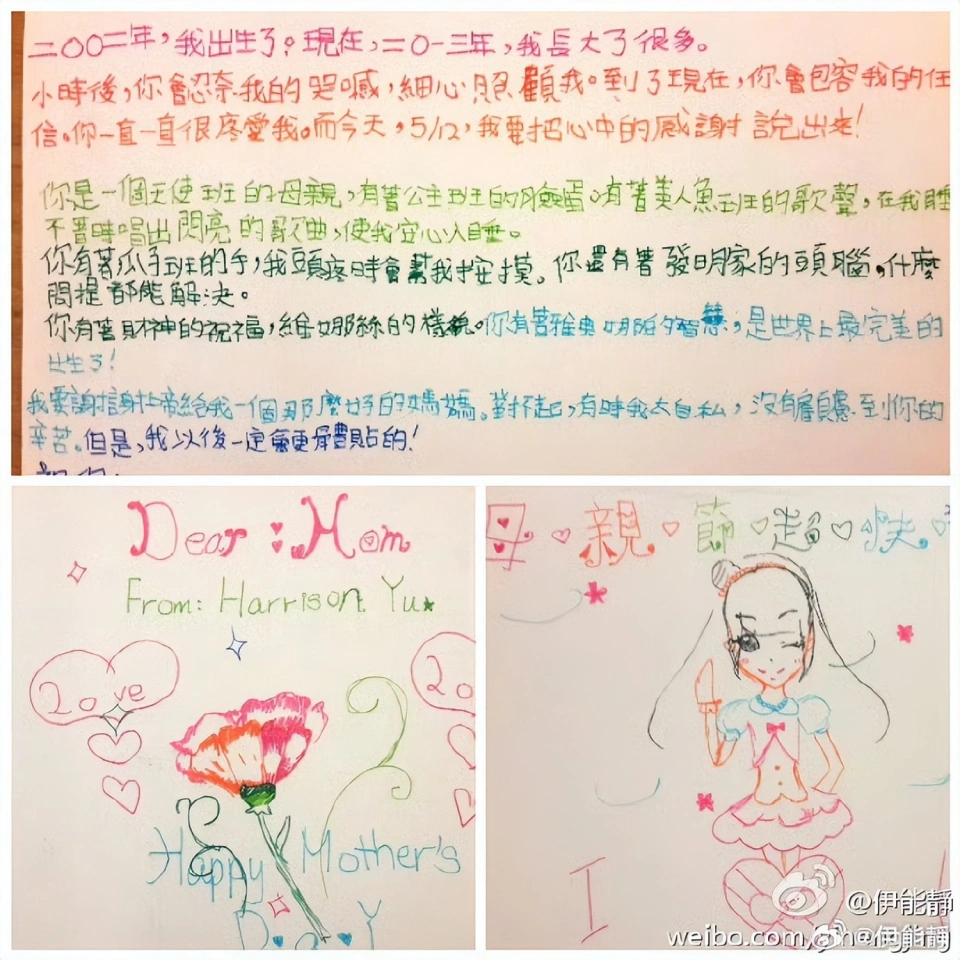 二〇〇二年，我出生了？現在，二〇一三年，我長大了很多。
小時後，你會忍奈我的哭喊，細心照顧我。到了現在，你會包容我的任
信。你一直一直很疼愛我。而今天，5/12，我要把心中的感謝說出來！
你是一個天使班的母親，有著公主班的臉蛋。有著美人魚班的歌聲，在我睡
不著時唱出閃亮的歌曲，使我安心入睡。
你有著瓜子班的手，我頭疼時會幫我按摸。你還有著發明家的頭腦，什麼
問提都能解決。
你有著財神的祝福，維娜絲的樣貌。你有著雅典娜的智慧，是世界上最完美的
出生了！
我要謝謝上帝給我一個那麼好的媽媽。對不起，有時我太自私，沒有顧慮到你的
辛苦。但是，我以後一定會更體貼的！
Dear : Mom
From: Harrison Yu
Love
Lo
Happy Mother's
DaY
母親節超快
I
@伊能靜
weibo.com/
@伊能靜